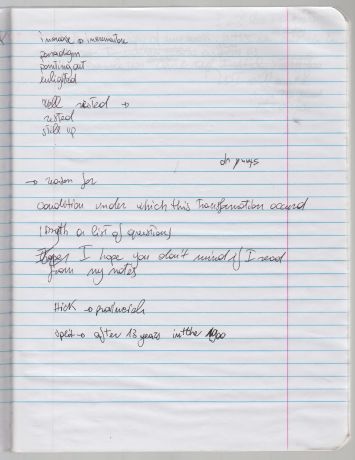 increase → incrementare
paradigm
pointing out
enlighted
well rested →
rested
still up
→ reason for
condition under which this transformation occured
length or list of questions
I hope you don't mind if I read
from my notes
Hick → provincial
split → after 13 years in the 1900